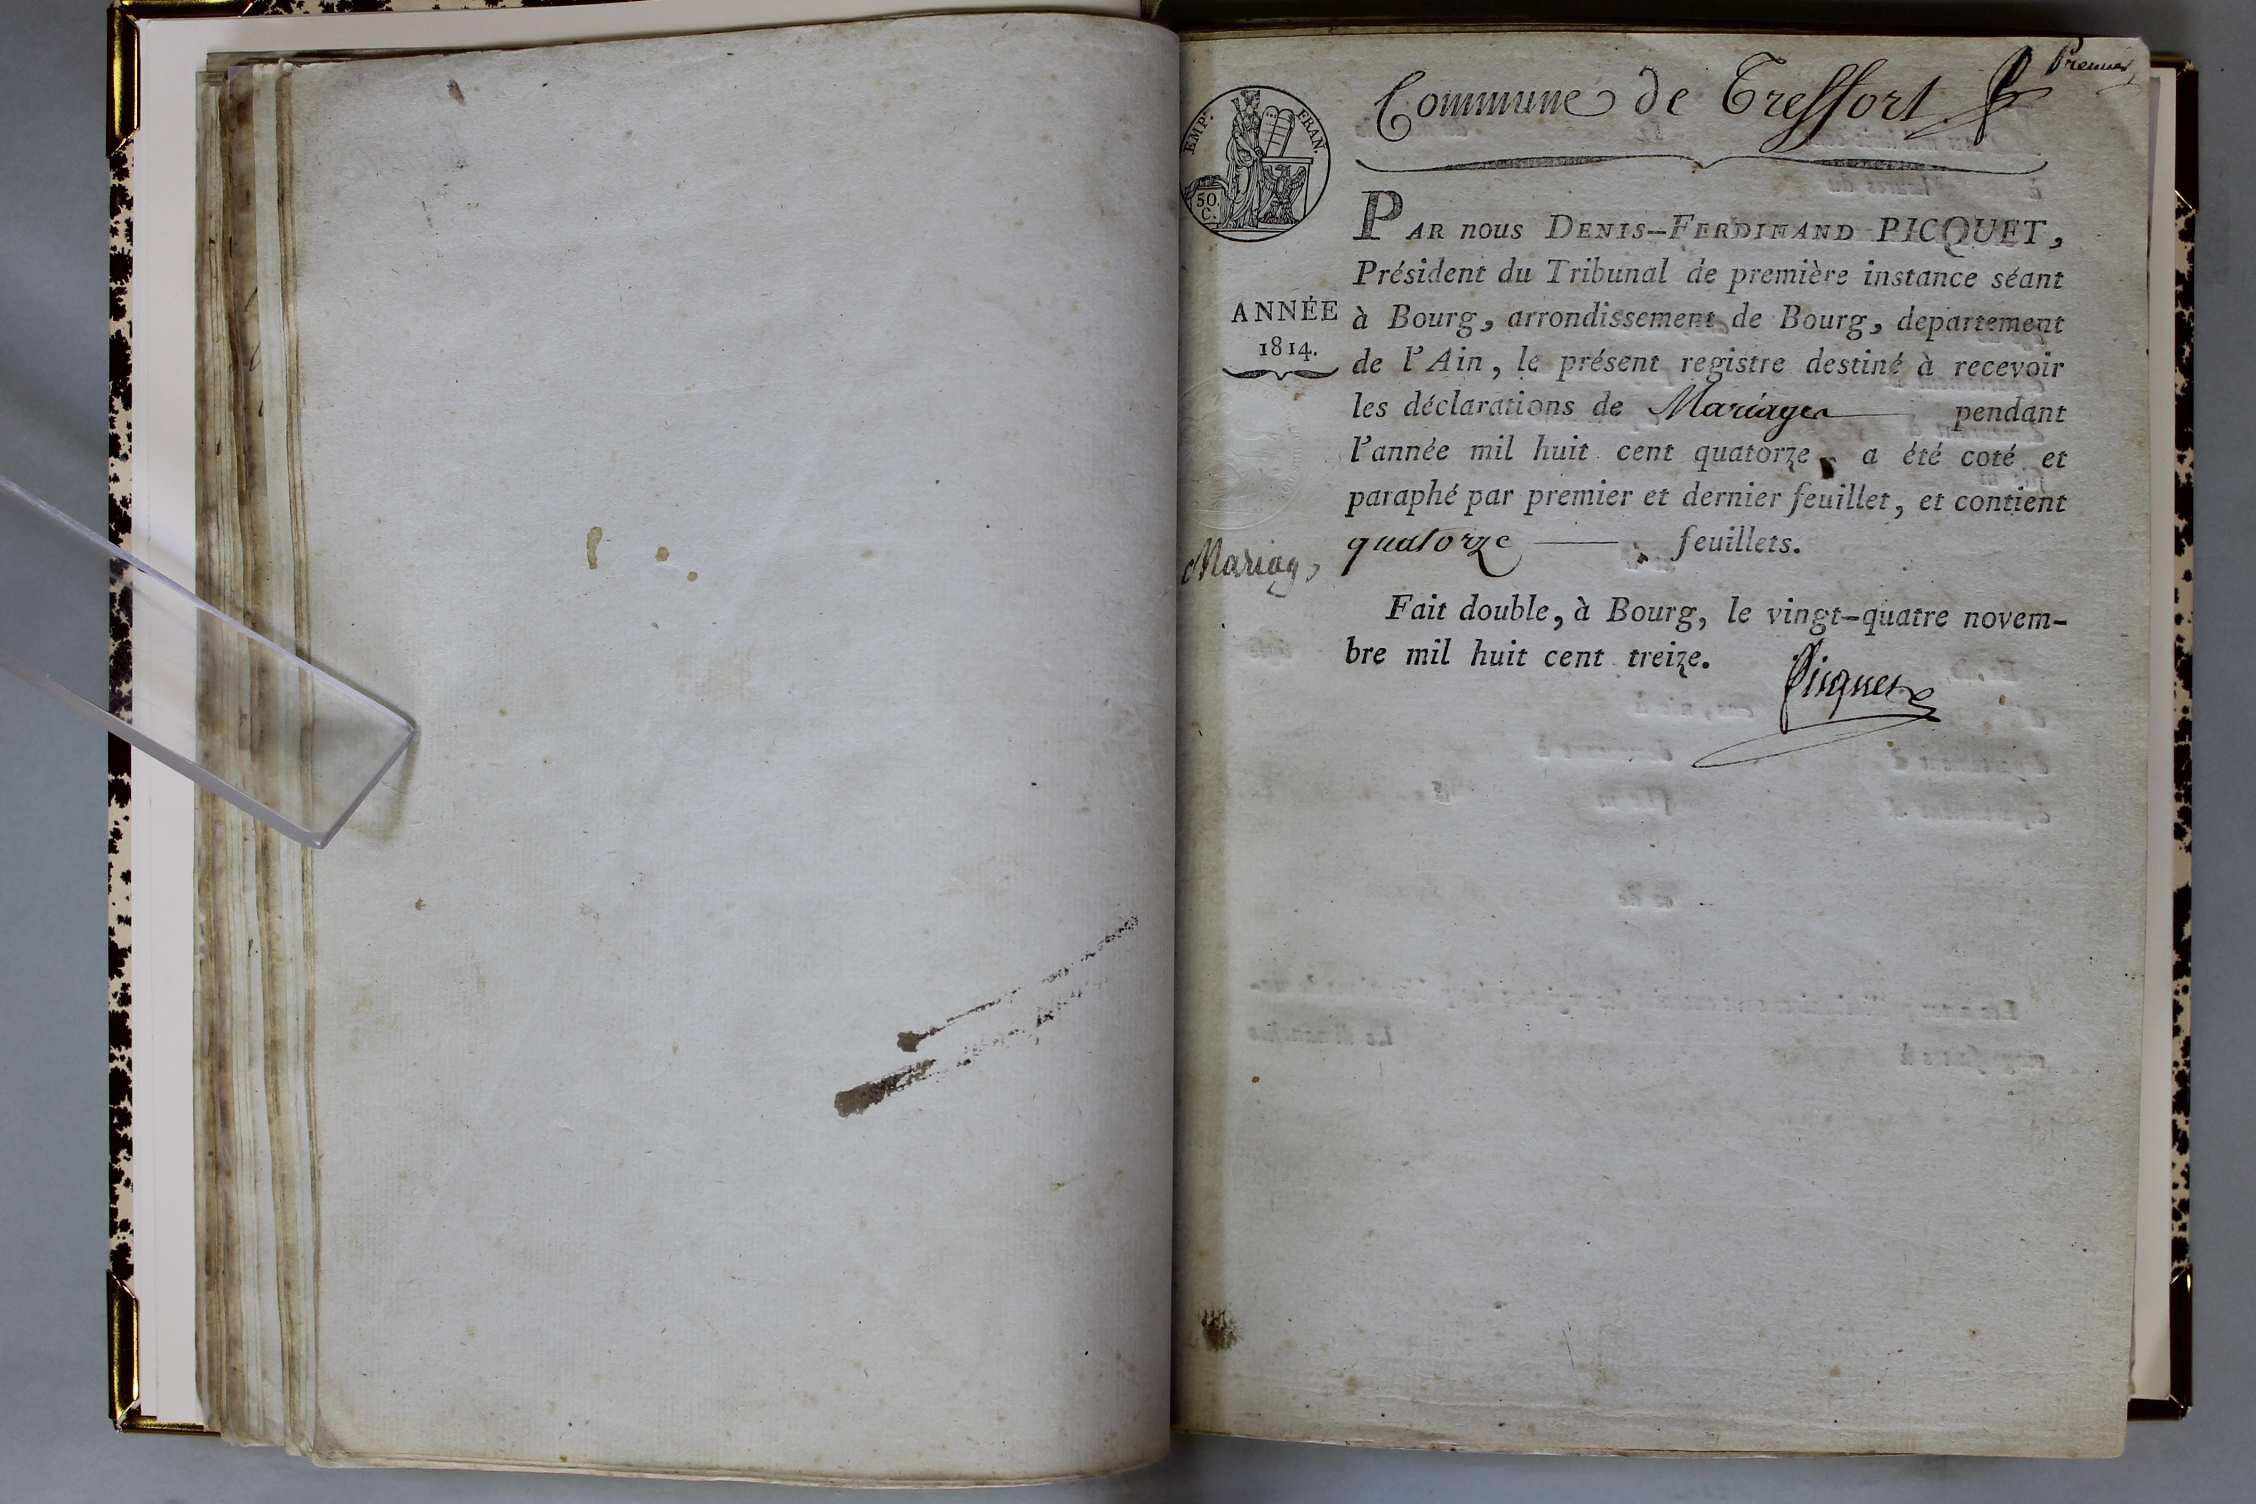 Premier
Commune de Treffort
EMP. FRAN.
50.
C.
PAR nous DENIS-FERDINAND PICQUET,
Président du Tribunal de première instance séant
ANNÉE
1814.
à Bourg, arrondissement de Bourg, departement
de l'Ain, le présent registre destiné à recevoir
les déclarations de Mariages pendant
l'année mil huit cent quatorze a été coté et
paraphé par premier et dernier feuillet, et contient
quatorze feuillets.
Mariag,
Fait double, à Bourg, le vingt-quatre novem-
bre mil huit cent treize.
Picquet